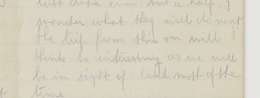 wonder what they will do next
the trip from this on will I
think be interesting as we will
be in sight of land most of the
time